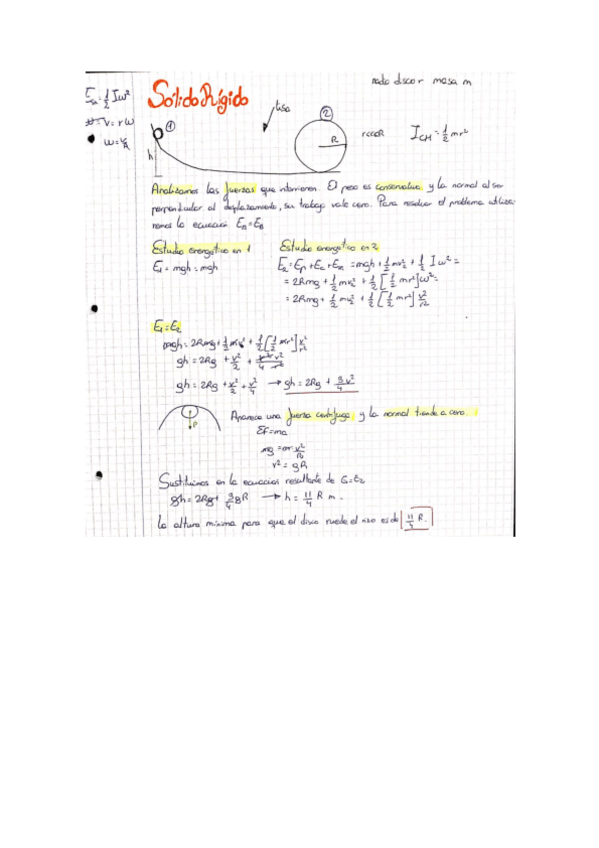 radio disco r masa m
Eca = 1/2 Iω²
Sólido Rígido
v = rω
ω = v/R
① lisa ②
h R r<<<R I_CM = 1/2 mr²
Analizamos las fuerzas que intervienen. El peso es conservativo y la normal al ser
perpendicular al desplazamiento, su trabajo vale cero. Para resolver el problema utiliza-
remos la ecuación
Estudio energético en 1
Estudio energético en 2
E₁ = mgh = mgh
E₂ = Ep + Ec + = mgh + 1/2 mv₂² + 1/2 I ω² =
= 2Rmg + 1/2 mv₂² + 1/2 [1/2 mr²] ω² =
= 2Rmg + 1/2 mv₂² + 1/2 [1/2 mr²] v²/r²
E₁ = E₂
mgh = 2Rmg + 1/2 mv² + 1/2 [1/2 mr²] v²/r²
gh = 2Rg + v²/2 + r² v²/4 r²
gh = 2Rg + v²/2 + v²/4 → gh = 2Rg + 3/4 v²
P
Aparece una fuerza centrífuga y la normal tiende a cero.
ΣF = ma
mg = m v²/R
v² = gR
Sustituimos en la ecuación resultante de E₁=E₂
gh = 2Rg + 3/4 gR → h = 11/4 R m.
La altura mínima para que el disco ruede el rizo es de 11/4 R.